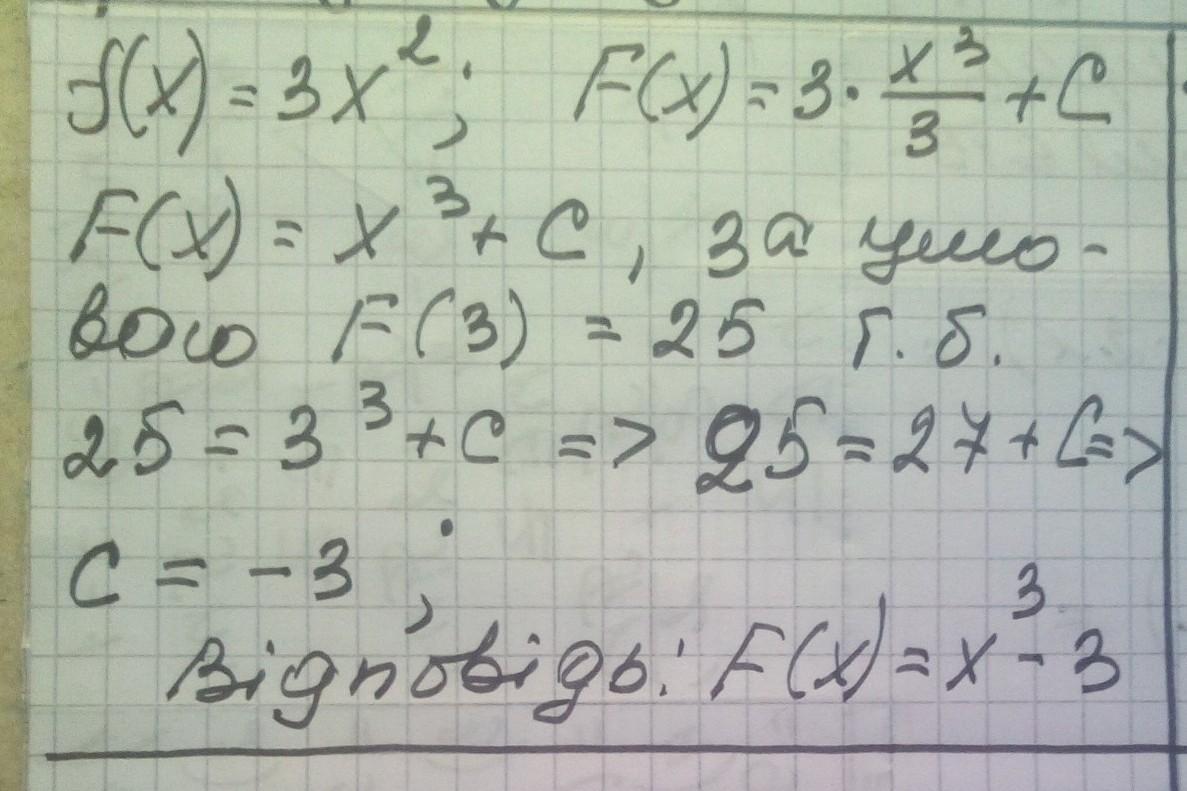 f(x) = 3x²; F(x) = 3 · x³/3 + C
F(x) = x³ + C, за умо-
вою F(3) = 25 т. б.
25 = 3³ + C => 25 = 27 + C =>
C = -3;
Відповідь: F(x) = x³ - 3